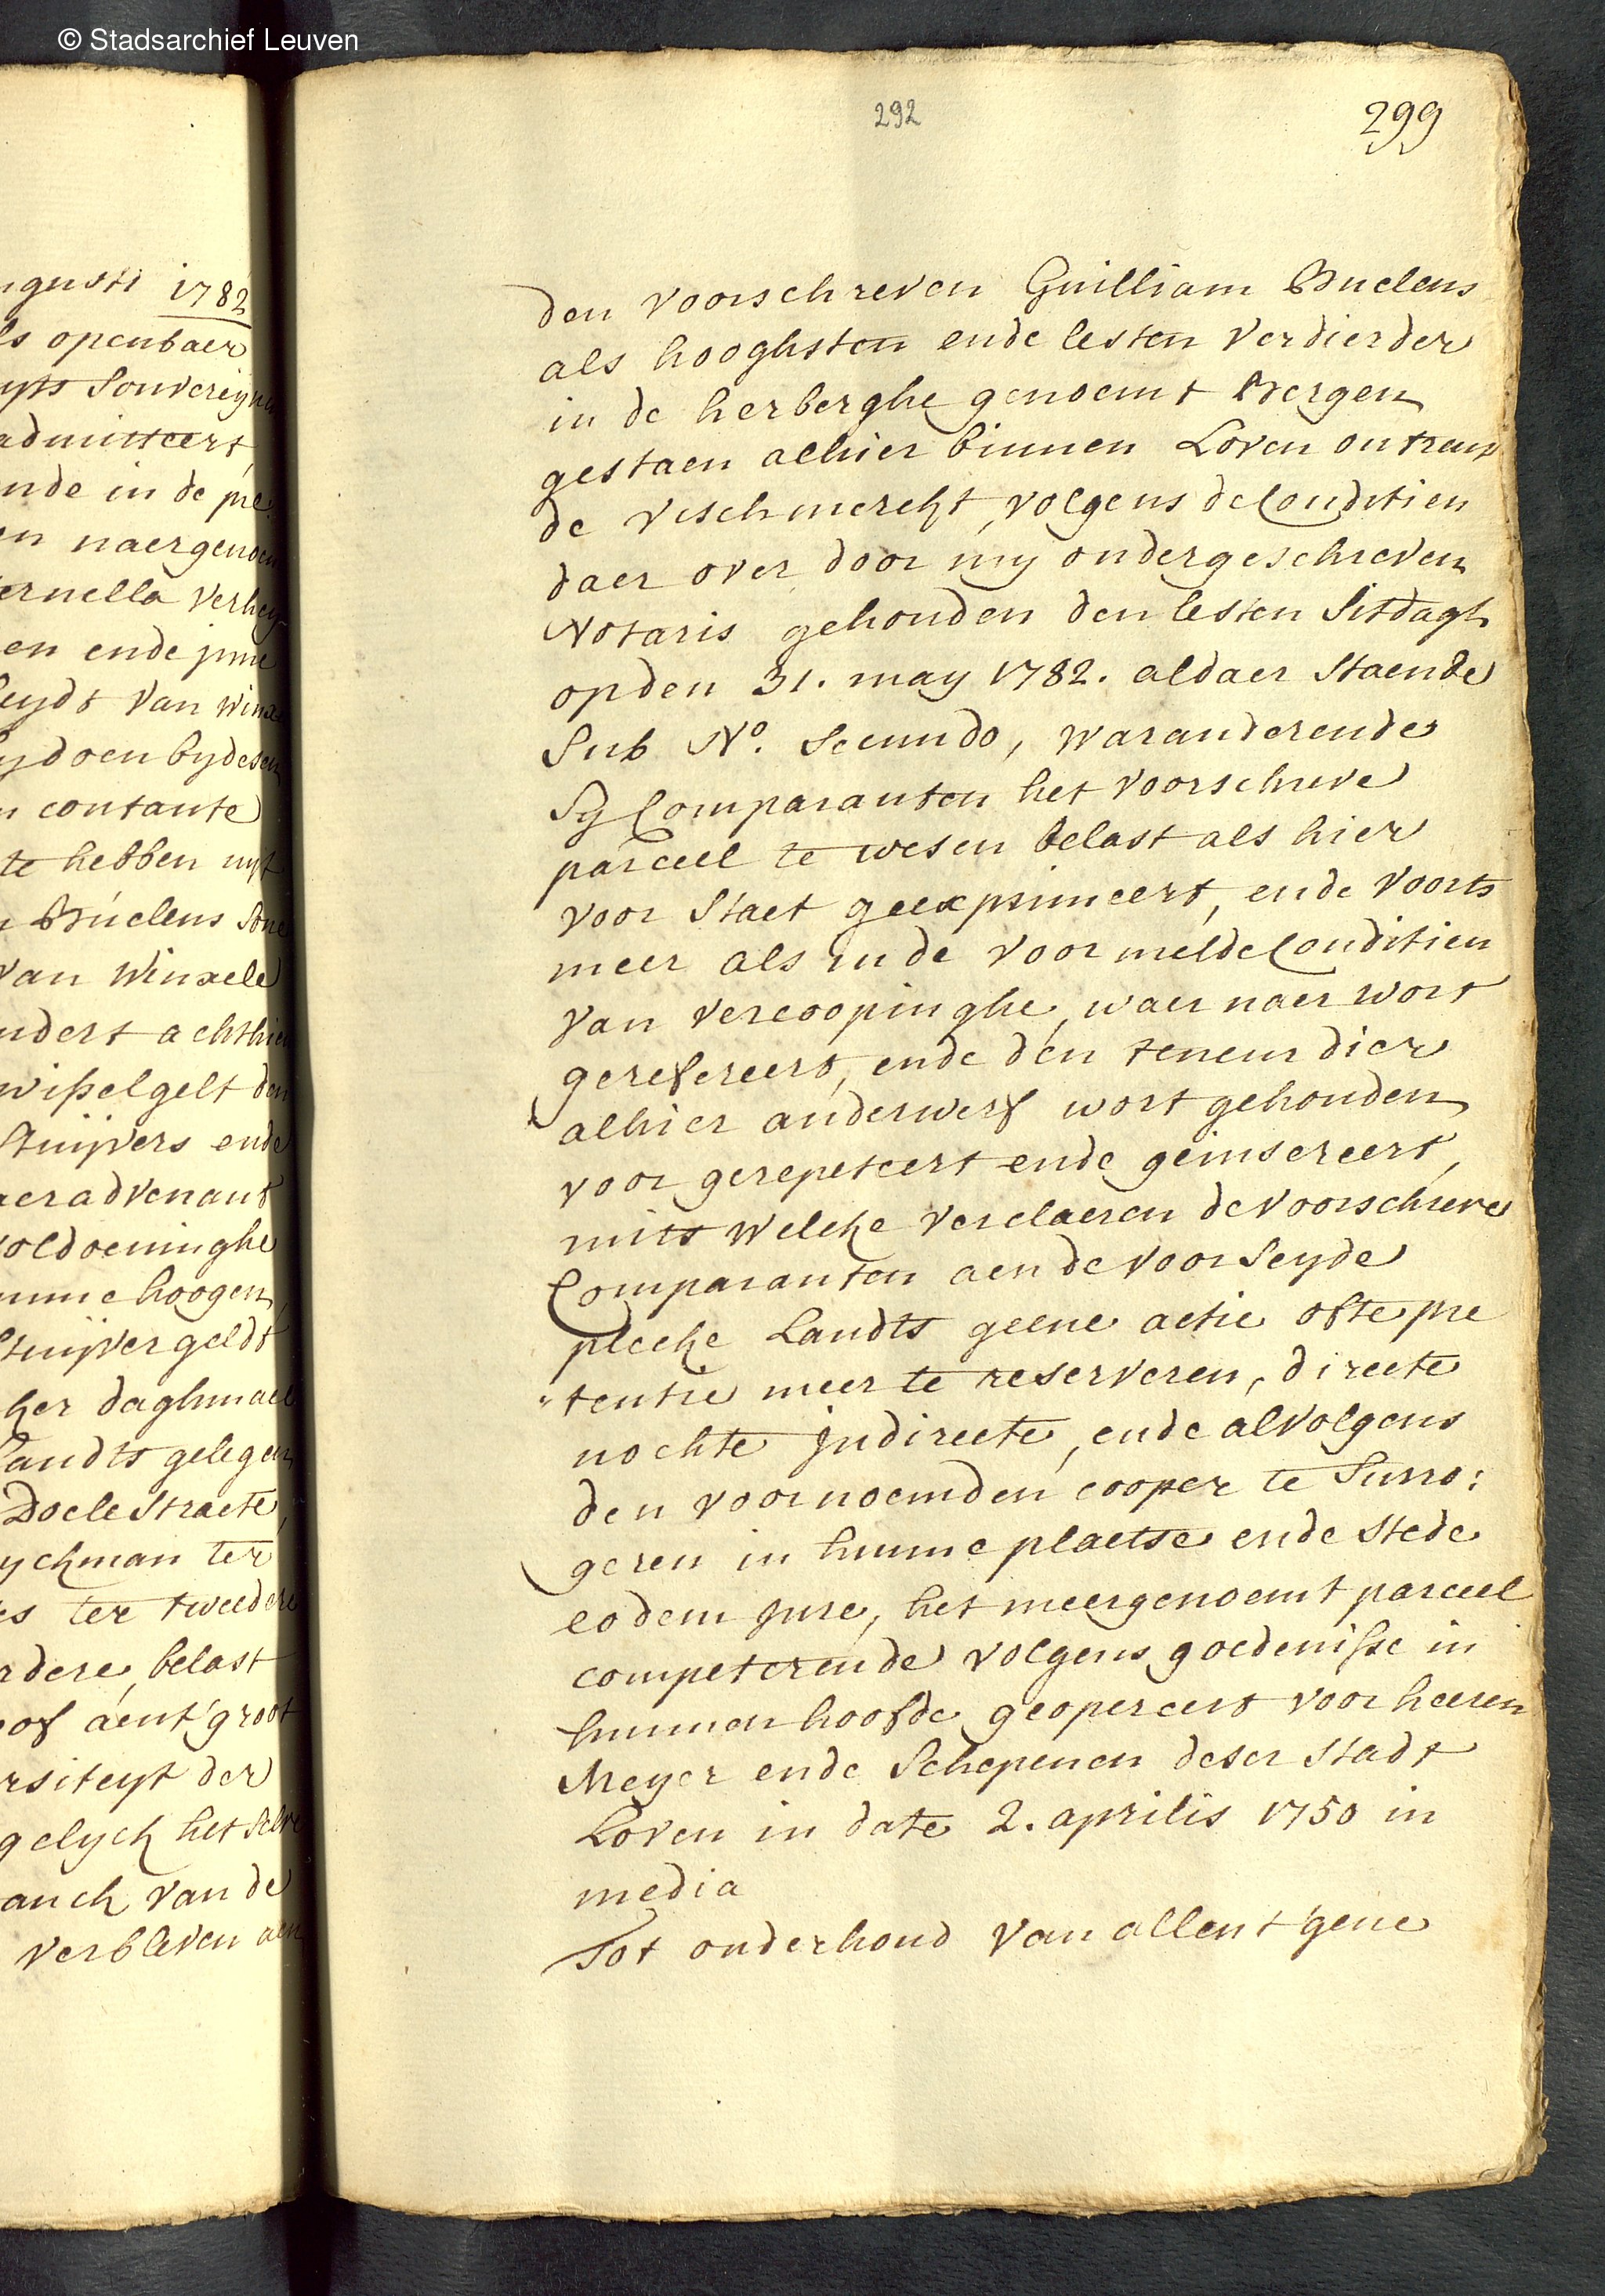 © Stadsarchief Leuven
1782
s openbaer
admitteert
nde in de pre
en naergenoem
ernella Verhey
en ende jme
eydt Van Winxe
doen bydesen
contante
te hebben uyt
Buelens Sone
Van Winxele
ndert achthien
wisselgelt den
Stuyvers ende
aeradvenant
voldoeninghe
hoogen
Stuyver geldt
daghmael
Landts gelegen
Doele Straete,
yckman ter
es ter tweedere
rdere, belast
of aent groot
rsiteyt der
gelyck het selve
anck van de
verbleven aen
292
299
den voorschreven Guilliam Buelens
als hooghsten ende lesten Verdierder
in de herberghe genoemt Bergen
gestaen alhier binnen Loven ontrent
de vischmerckt, volgens de Conditien
daer over door my ondergeschreven
Notaris gehouden den lesten Sitdagh
op den 31. may 1782. aldaer Staende
Sub N°. Secundo, waranderende
Sy Comparanten het voorschreve
parceel te wesen belast als hier
voor Staet geexprimeert, ende voorts
meer als in de voormelde Conditien
van vercoopinghe, waer naer wort
gerefereert, ende den teneur dier
alhier anderwerf wort gehouden
voor gerepeteert ende geinsereert,
mits welcke verclaeren de voorschreve
Comparanten aen de voorseyde
plecke Landts geene actie ofte pre
"tentie meer te reserveren, directe
nochte indirecte, ende alvolgens
den voornoemden cooper te Surro:
geren in hunne plaetse ende stede
eodem jure, het meergenoemt parceel
competerende volgens goedenisse in
hunnen hoofde geopereert voor heeren
Meyer ende Schepenen deser Stadt
Loven in date 2. aprilis 1750 in
media
Tot onderhoud van allen t'gene